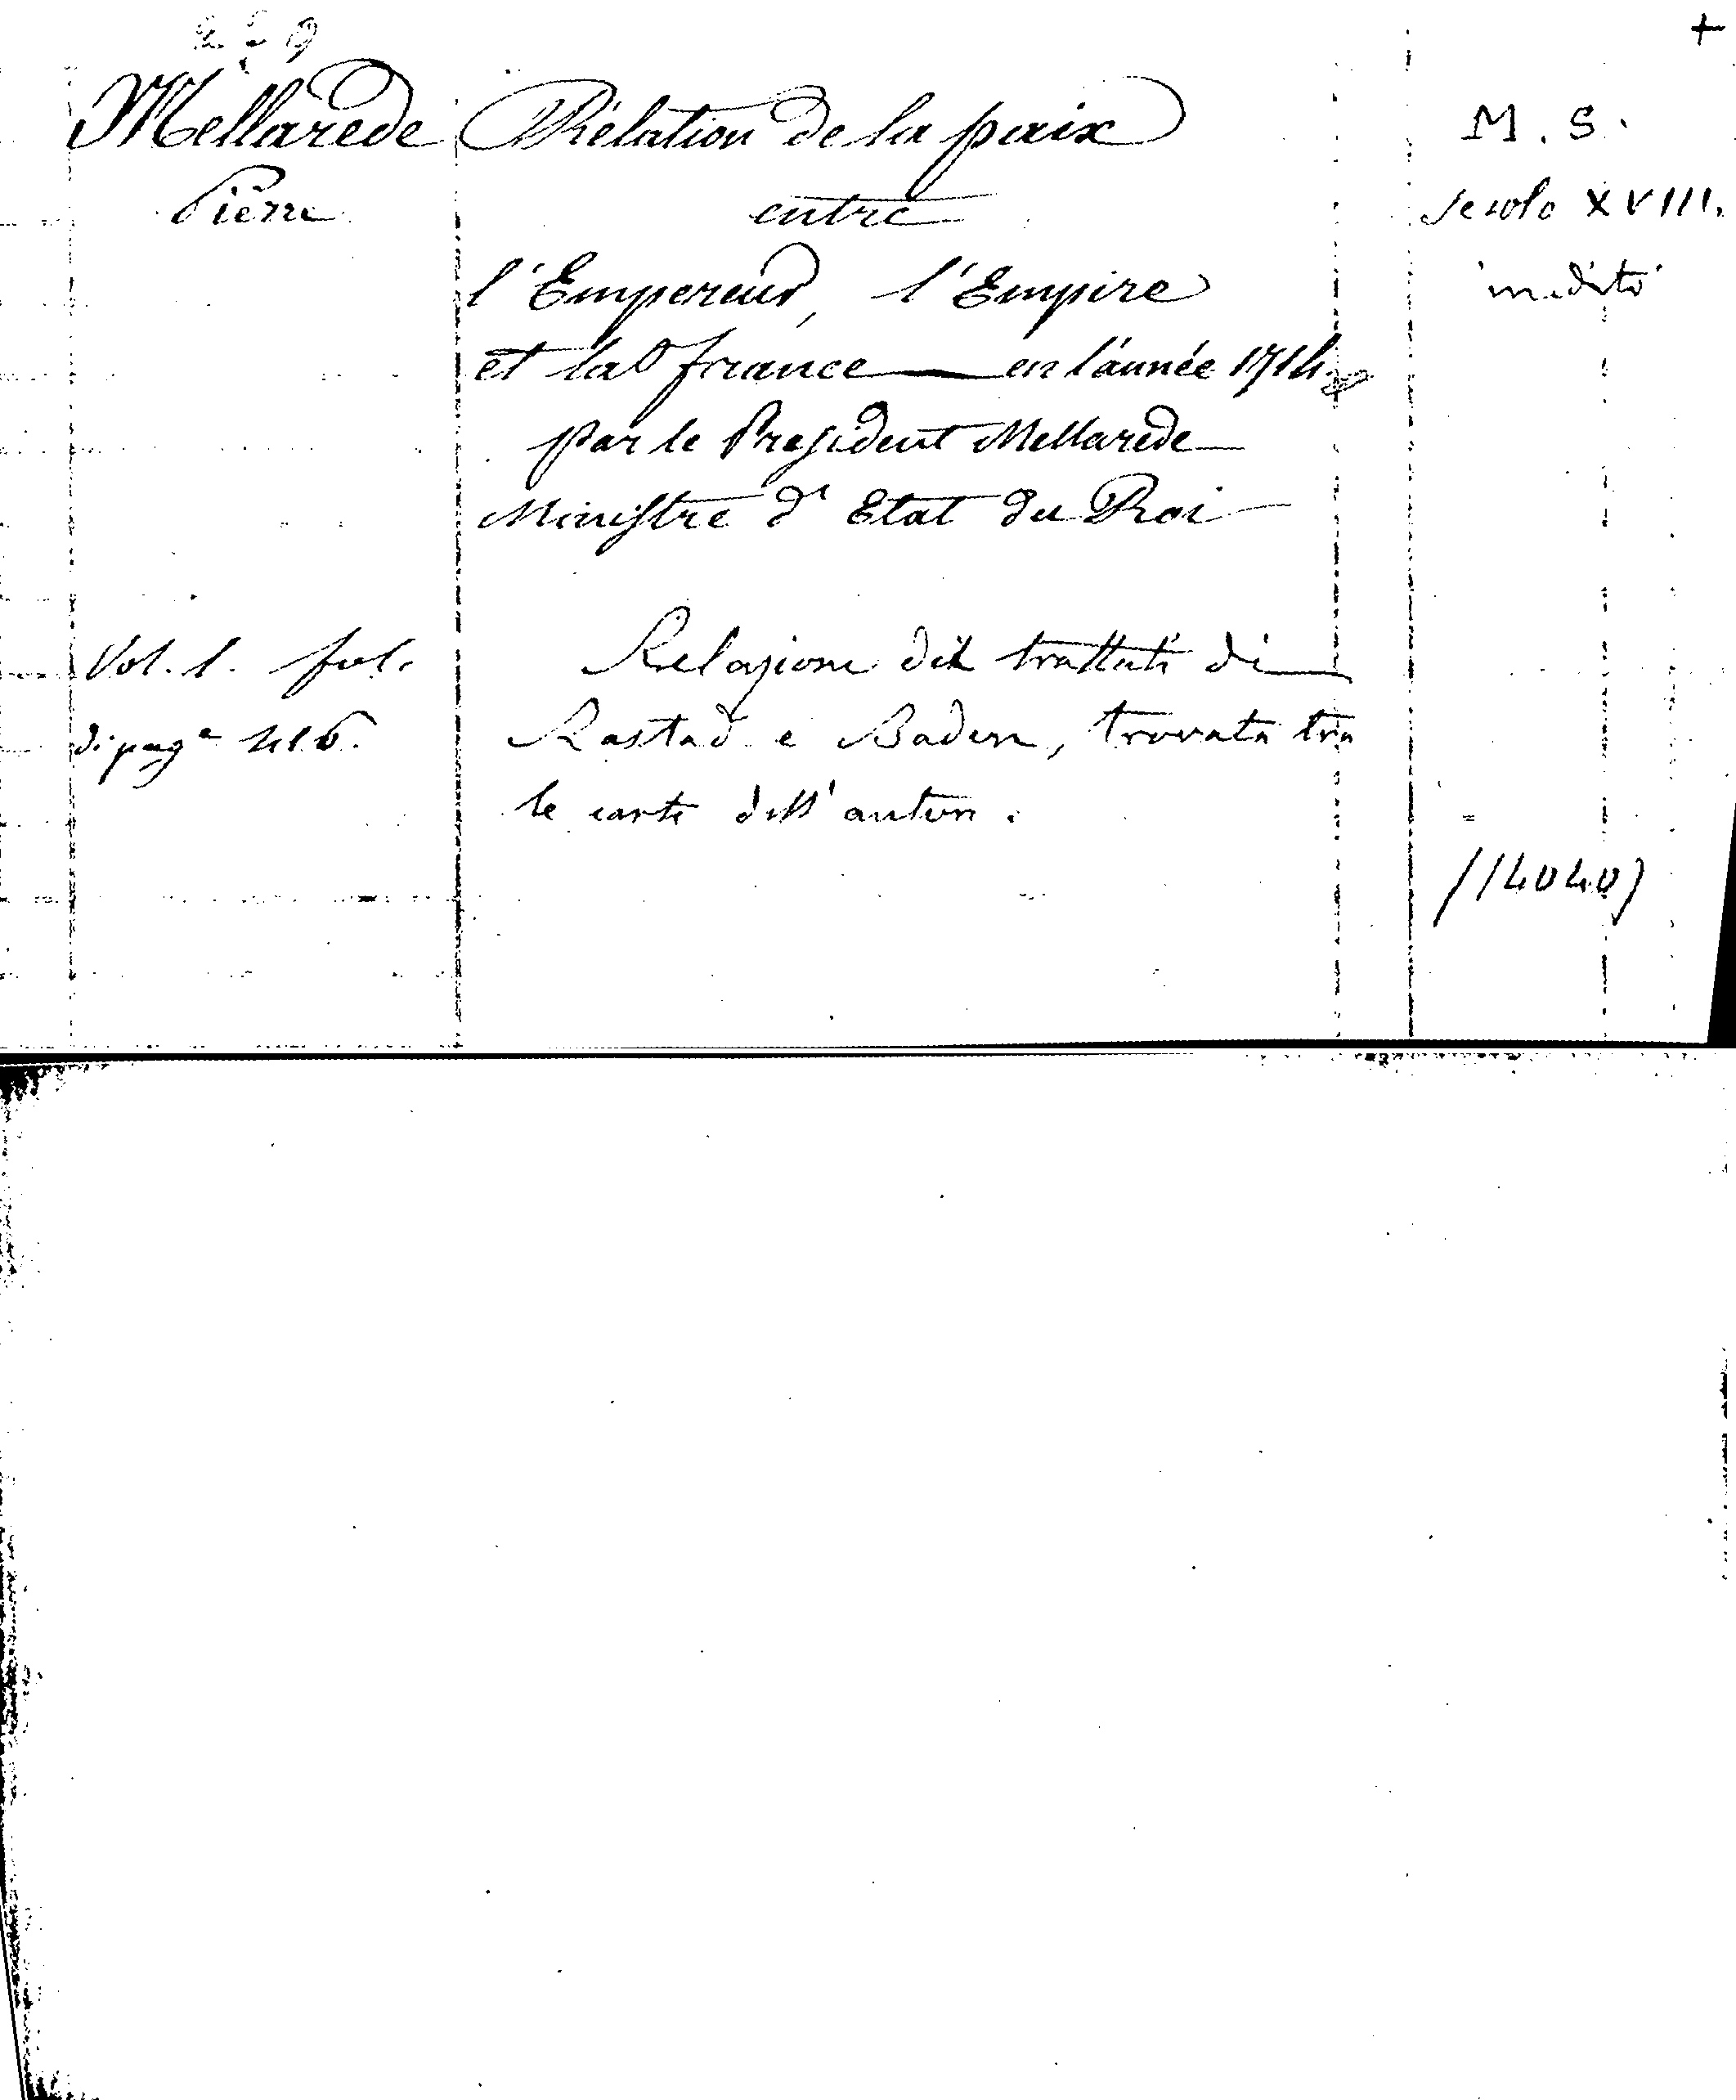 +
Mellarede
Pierre
Rélation de la paix
entre
l'Empereur, l'Empire
et la france — en l'année 1714.
par le President Mellarede
Ministre d'Etat du Roi
M. S.
secolo XVIII.
inedito
Vol. 1. fol.
di pag.ª 416.
Relazione dei trattati di
Rastad e Baden, trovata tra
le carte dell'autore.
(14040)